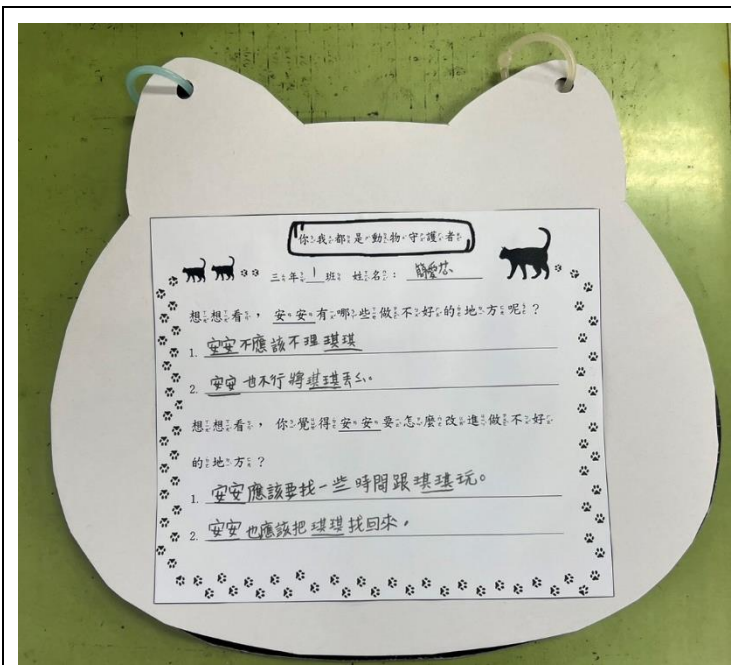 你我都是動物守護者
三年1班 姓名：簡愛芯
想想看，安安有哪些做不好的地方呢？
1. 安安不應該不理琪琪
2. 安安也不行將琪琪丟
想想看，你覺得安安要怎麼改進做不好
的地方？
1. 安安應該要找一些時間跟琪琪玩。
2. 安安也應該把琪琪找回來，